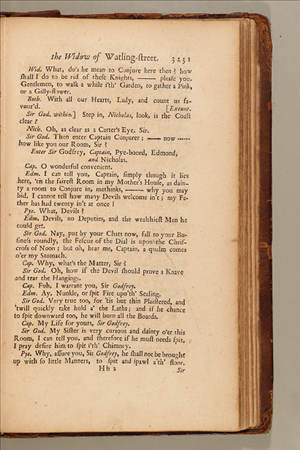 the Widow of Watling-street. 3231
Wid. What, do's he mean to Conjure here then? how
shall I do to be rid of these Knights, —— please you,
Gentlemen, to walk a while i'th' Garden, to gather a Pink,
or a Gilly-flower.
Both. With all our Hearts, Lady, and count us fa-
vour'd. [Exeunt.
Sir God. within.] Step in, Nicholas, look, is the Coast
clear?
Nich. Oh, as clear as a Carter's Eye, Sir.
Sir God. Then enter Captain Conjurer: —— now ——
how like you our Room, Sir?
Enter Sir Godfrey, Captain, Pye-board, Edmond,
and Nicholas.
Cap. O wonderful convenient.
Edm. I can tell you, Captain, simply though it lies
here, 'tis the fairest Room in my Mother's House, as dain-
ty a room to Conjure in, methinks, —— why you may
bid, I cannot tell how many Devils welcome in't; my Fa-
ther has had twenty in't at once!
Pye. What, Devils!
Edm. Devils, no Deputies, and the wealthiest Men he
could get.
Sir God. Nay, put by your Chats now, fall to your Bu-
siness roundly, the Fescue of the Dial is upon the Christ-
cross of Noon; but oh, hear me, Captain, a qualm comes
o'er my Stomach.
Cap. Why, what's the Matter, Sir?
Sir God. Oh, how if the Devil should prove a Knave
and tear the Hangings.
Cap. Fuh, I warrant you, Sir Godfrey.
Edm. Ay, Nunkle, or spit Fire upo'th' Sealing.
Sir God. Very true too, for 'tis but thin Plaistered, and
'twill quickly take hold a' the Laths; and if he chance
to spit downward too, he will burn all the Boards.
Cap. My Life for yours, Sir Godfrey.
Sir God. My Sister is very curious and dainty o'er this
Room, I can tell you, and therefore if he must needs spit,
I pray desire him to spit i'th' Chimney.
Pye. Why, assure you, Sir Godfrey, he shall not be brought
up with so little Manners, to spit and spawl a'th' floor.
H h 2 Sir